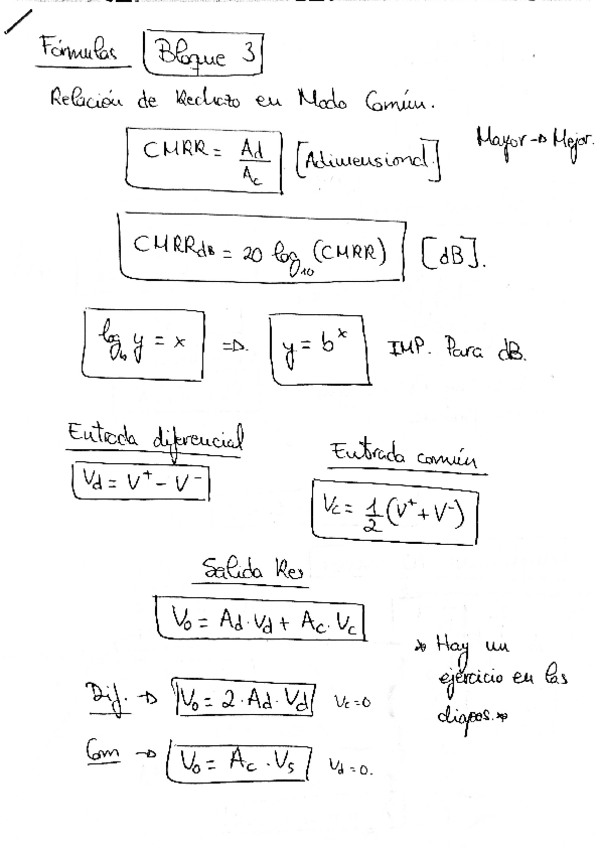 Fórmulas Bloque 3
Relación de Rechazo en Modo Común.
CMRR = Ad/Ac [Adimensional] Mayor → Mejor.
CMRRdB = 20 log₁₀ (CMRR) [dB].
log_b y = x ⇒ y = b^x IMP. Para dB.
Entrada diferencial
Vd = V⁺ - V⁻
Entrada común
Vc = 1/2 (V⁺ + V⁻)
Salida Res
Vo = Ad · Vd + Ac · Vc
* Hay un
ejercicio en las
diapos. *
Dif. → Vo = 2 · Ad · Vd Vc = 0
Com → Vo = Ac · Vs Vd = 0.